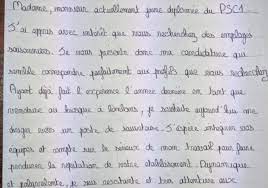 Madame, monsieur actuellement jeune diplômée du PSC1
J'ai appris avec intérêt que vous recherchez des employés
saisonniers. Je vous présente donc ma candidature qui
semble correspondre parfaitement aux profils que vous recherchez
Ayant déjà fait l'expérience l'année dernière en tant que
vendeuse au kiosque à, je souhaite aujourd'hui me
diriger vers un poste de saisonnière. J'espère intégrer vos
équipes et compte sur le sérieux de mon travail pour faire
perdurer la réputation de votre établissement. Dynamique
et polyvalente, je suis souriante et très attentive aux